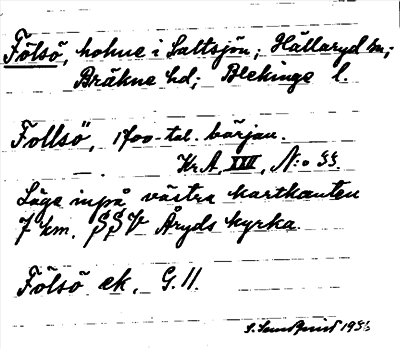 Fölsö, holme i Saltsjön, Hällaryd sn;
Bräkne hd; Blekinge l.
Follsö, 1700-tal. början.
Kr.A. XXII, N:o 33.
Läge inpå västra kartkanten
7 km. SSV Åryds kyrka.
Fölsö ek. G.11.